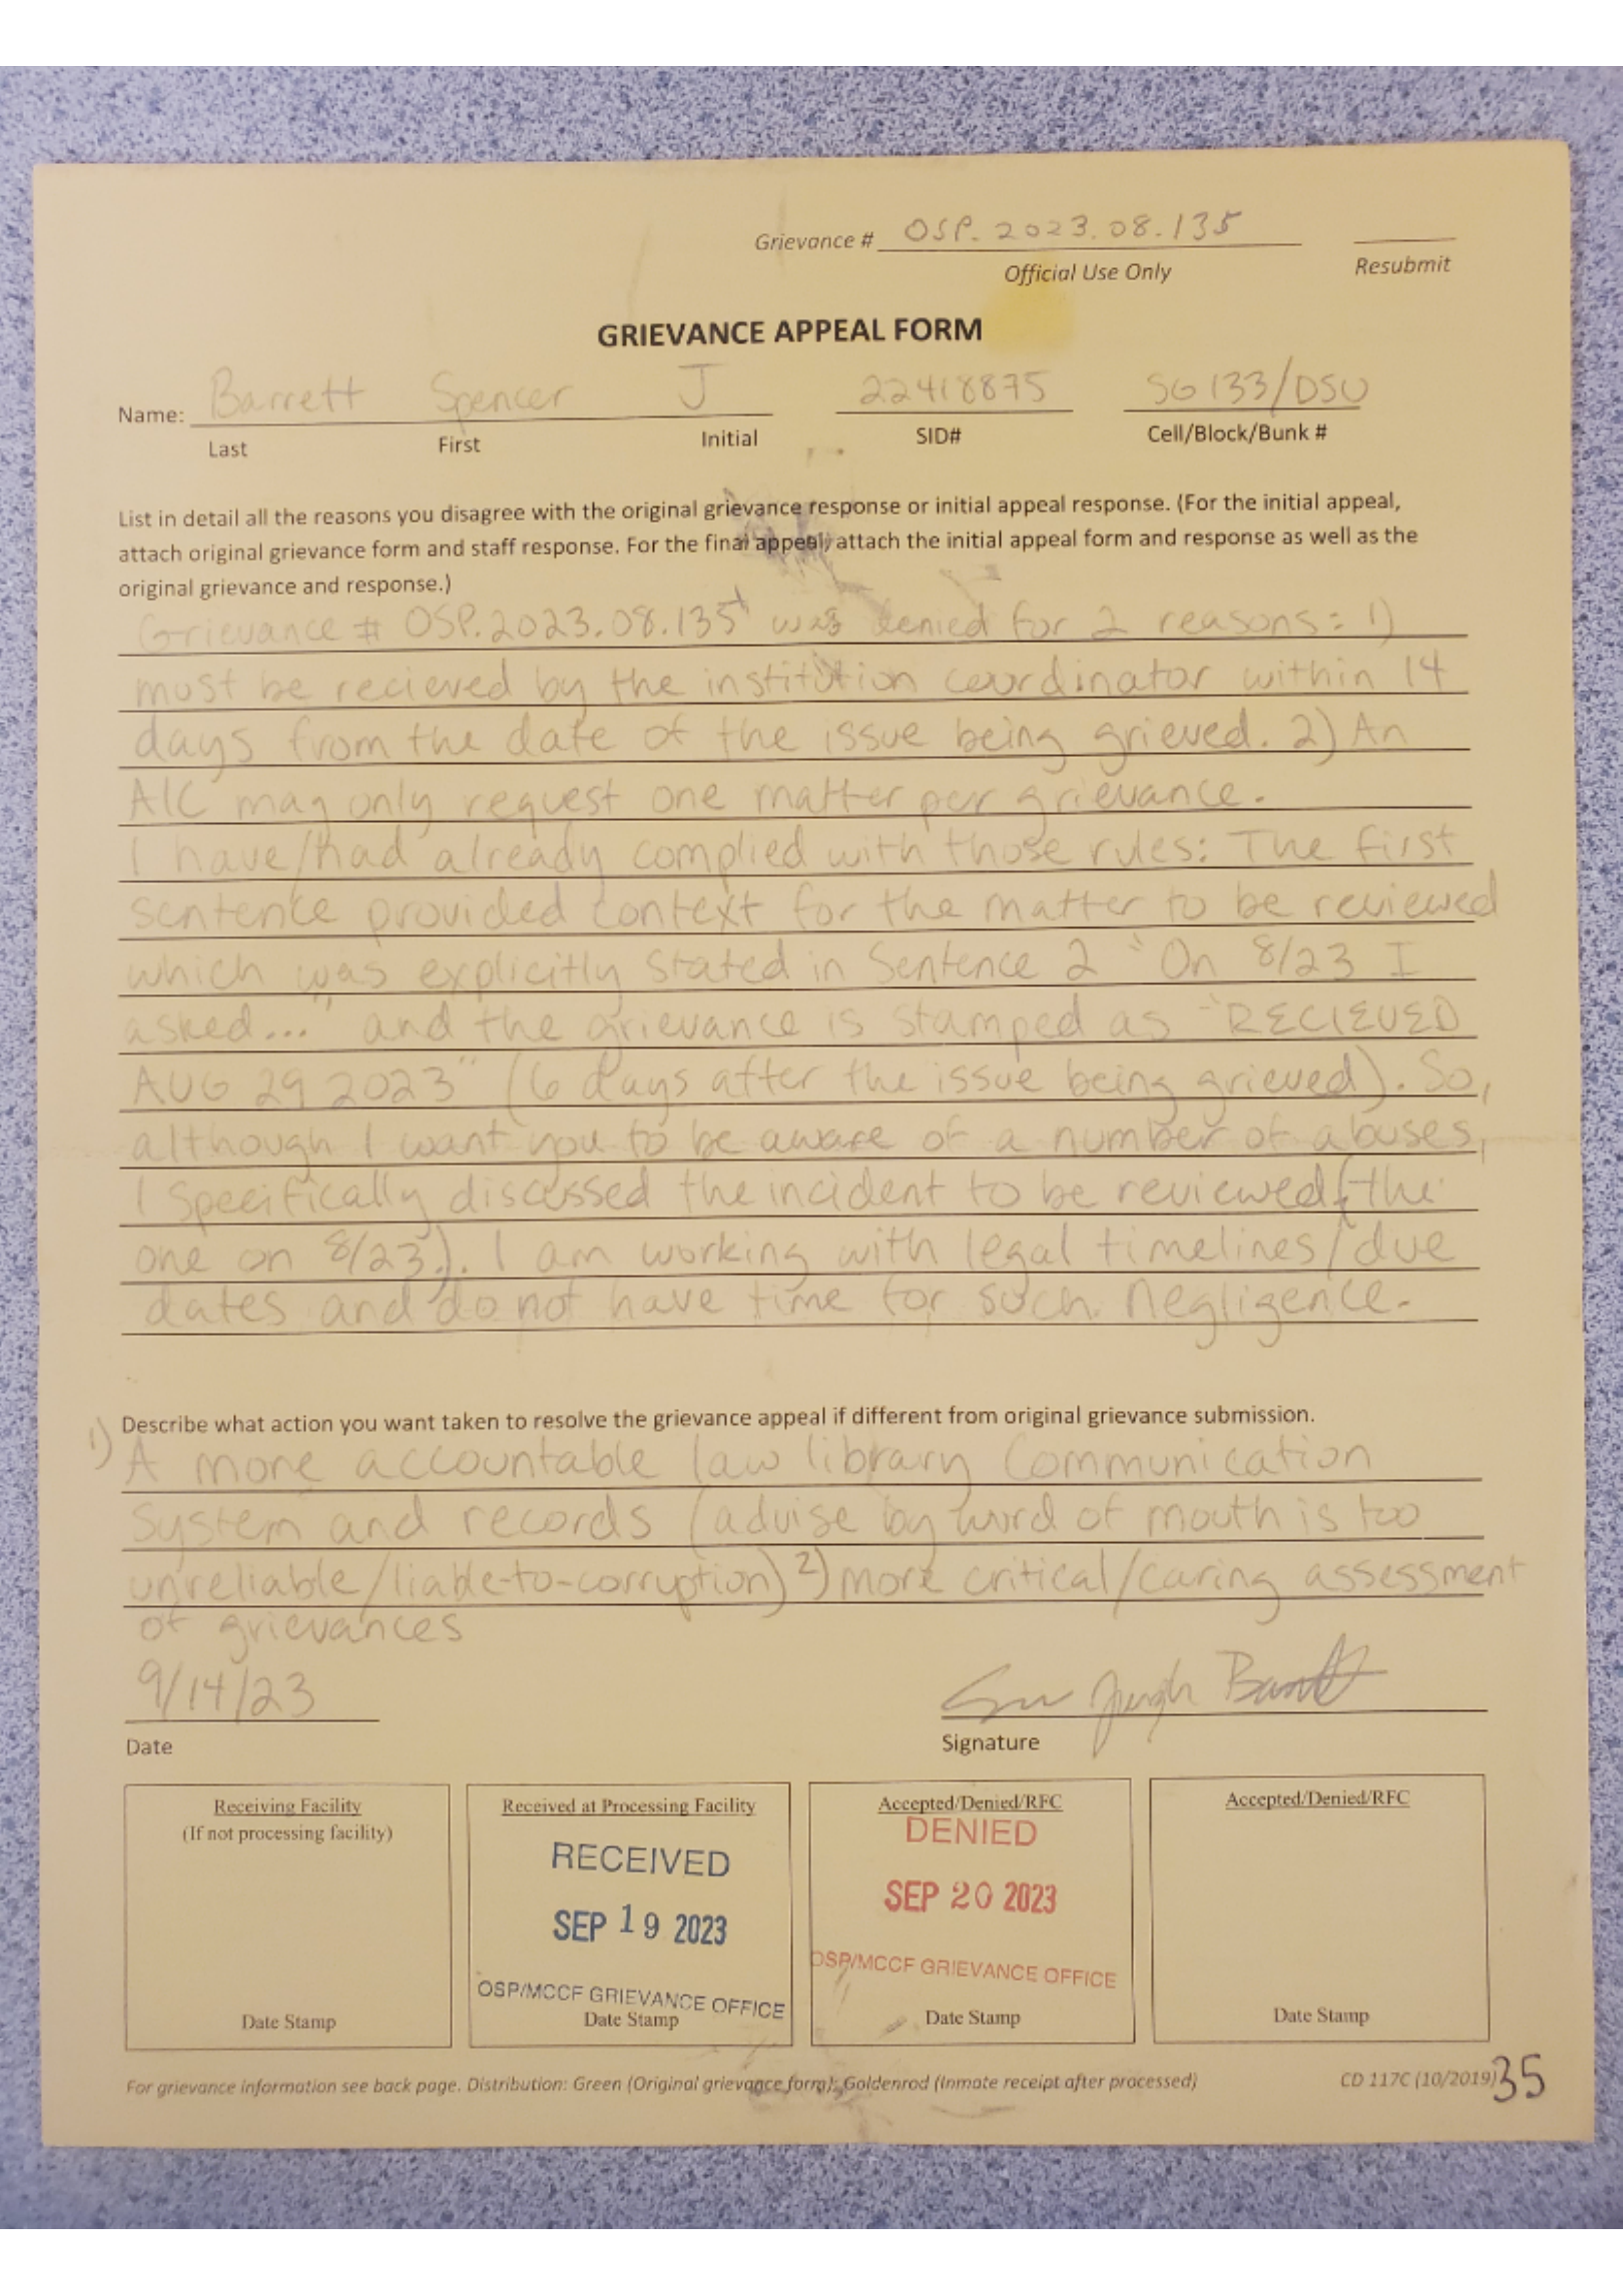 Grievance # OSP. 2023.08.135
Official Use Only
Resubmit
GRIEVANCE APPEAL FORM
Name: Barrett Spencer J 22418875 SG133/DSU
Last First Initial SID# Cell/Block/Bunk #
List in detail all the reasons you disagree with the original grievance response or initial appeal response. (For the initial appeal,
attach original grievance form and staff response. For the final appeal, attach the initial appeal form and response as well as the
original grievance and response.)
Grievance # OSP.2023.08.135 was denied for 2 reasons: 1)
must be recieved by the institution coordinator within 14
days from the date of the issue being grieved. 2) An
AIC may only request one matter per grievance.
I have/had already complied with those rules: The first
sentence provided context for the matter to be reviewed
which was explicitly stated in Sentence 2 "On 8/23 I
asked..." and the grievance is stamped as "RECIEVED
AUG 29 2023" (6 days after the issue being grieved). So,
although I want you to be aware of a number of abuses,
I specifically discussed the incident to be reviewed (the
one on 8/23.). I am working with legal timelines/due
dates and do not have time for such negligence.
Describe what action you want taken to resolve the grievance appeal if different from original grievance submission.
1) A more accountable law library communication
system and records (advise by word of mouth is too
unreliable/liable-to-corruption) 2) more critical/caring assessment
of grievances
9/14/23
Date Signature
Receiving Facility
(If not processing facility)
Date Stamp
Received at Processing Facility
RECEIVED
SEP 19 2023
OSP/MCCF GRIEVANCE OFFICE
Date Stamp
Accepted/Denied/RFC
DENIED
SEP 20 2023
OSP/MCCF GRIEVANCE OFFICE
Date Stamp
Accepted/Denied/RFC
Date Stamp
For grievance information see back page. Distribution: Green (Original grievance form); Goldenrod (Inmate receipt after processed)
CD 117C (10/2019) 35